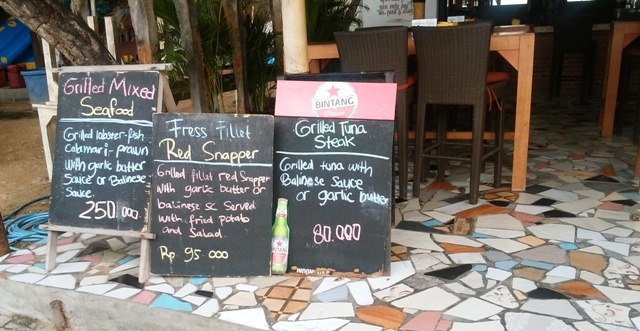 Grilled Mixed
Seafood
Grilled lobster-fish
Calamari-prawn
with garlic butter
Sauce or Balinese
Sauce.
250.000
Fress Fillet
Red Snapper
Grilled fillet red Snapper
with garlic butter or
balinese sc served
with fried potato
and Salad
Rp 95.000
BINTANG
Grilled Tuna
Steak
Grilled tuna with
Balinese Sauce
or garlic butter
80.000
BINTANG